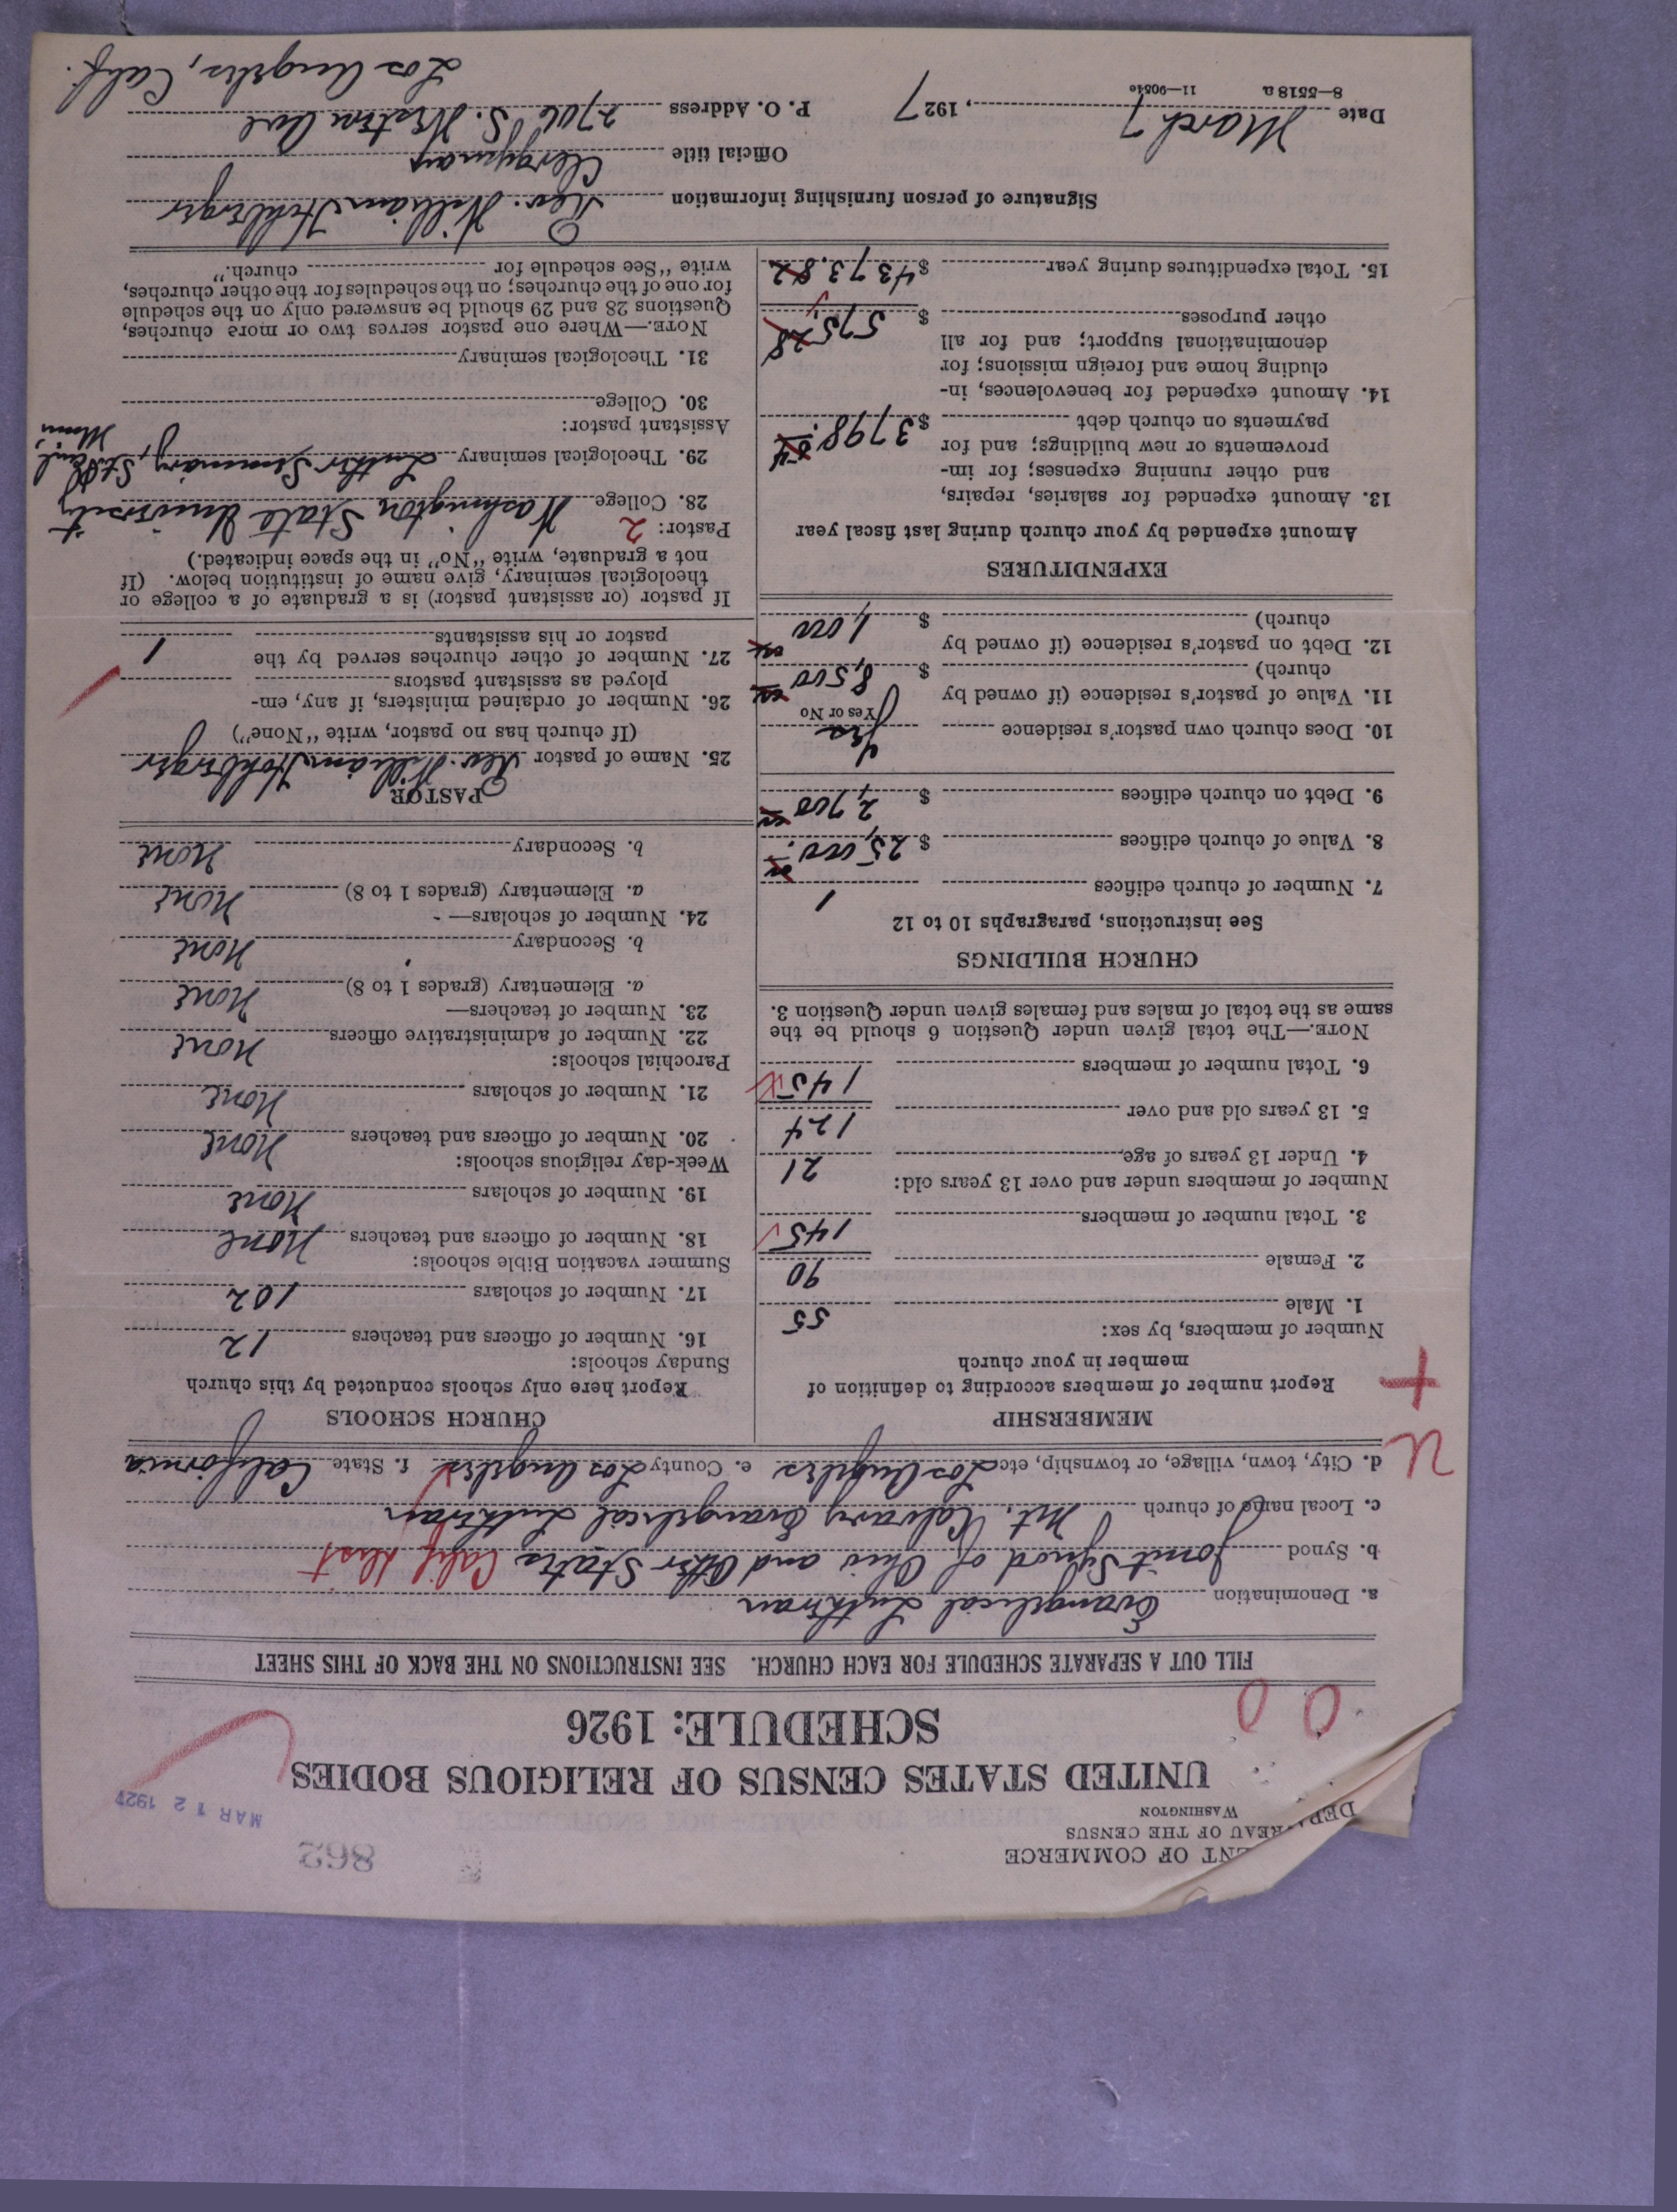 DEPA ENT OF COMMERCE
REAU OF THE CENSUS
WASHINGTON
862
MAR 12 1927
UNITED STATES CENSUS OF RELIGIOUS BODIES
SCHEDULE: 1926
FILL OUT A SEPARATE SCHEDULE FOR EACH CHURCH. SEE INSTRUCTIONS ON THE BACK OF THIS SHEET
a. Denomination Evangelical Lutheran
b. Synod Joint Synod of Ohio and Other States Calif Dist
c. Local name of church Mt. Calvary Evangelical Lutheran
d. City, town, village, or township, etc. Los Angeles e. County Los Angeles f. State California
MEMBERSHIP
Report number of members according to definition of
member in your church
Number of members, by sex:
1. Male 55
2. Female 90
3. Total number of members 145
Number of members under and over 13 years old:
4. Under 13 years of age 21
5. 13 years old and over 124
6. Total number of members 145
NOTE.—The total given under Question 6 should be the
same as the total of males and females given under Question 3.
CHURCH BUILDINGS
See instructions, paragraphs 10 to 12
7. Number of church edifices 1
8. Value of church edifices $ 25,000.
9. Debt on church edifices $ 2,700
10. Does church own pastor's residence Yes
Yes or No
11. Value of pastor's residence (if owned by
church) $ 8,500
12. Debt on pastor's residence (if owned by
church) $ 1,000
EXPENDITURES
Amount expended by your church during last fiscal year
13. Amount expended for salaries, repairs,
and other running expenses; for im-
provements or new buildings; and for
payments on church debt $ 3798.
14. Amount expended for benevolences, in-
cluding home and foreign missions; for
denominational support; and for all
other purposes $ 575.
15. Total expenditures during year $ 4373.82
CHURCH SCHOOLS
Report here only schools conducted by this church
Sunday schools:
16. Number of officers and teachers 12
17. Number of scholars 102
Summer vacation Bible schools:
18. Number of officers and teachers None
19. Number of scholars None
Week-day religious schools:
20. Number of officers and teachers None
21. Number of scholars None
Parochial schools:
22. Number of administrative officers None
23. Number of teachers—
a. Elementary (grades 1 to 8) None
b. Secondary None
24. Number of scholars—
a. Elementary (grades 1 to 8) None
b. Secondary None
PASTOR
25. Name of pastor Rev. William
(If church has no pastor, write "None")
26. Number of ordained ministers, if any, em-
ployed as assistant pastors
27. Number of other churches served by the
pastor or his assistants 1
If pastor (or assistant pastor) is a graduate of a college or
theological seminary, give name of institution below. (If
not a graduate, write "No" in the space indicated.)
Pastor: 2
28. College Washington State University
29. Theological seminary Luther Seminary, St. Paul, Minn
Assistant pastor:
30. College
31. Theological seminary
NOTE.—Where one pastor serves two or more churches,
Questions 28 and 29 should be answered only on the schedule
for one of the churches; on the schedules for the other churches,
write "See schedule for church."
Signature of person furnishing information Rev. William
Official title Clergyman
Date March 7, 1927 P. O. Address 2706 S. Western Ave
Los Angeles, Calif.
8—5518 a